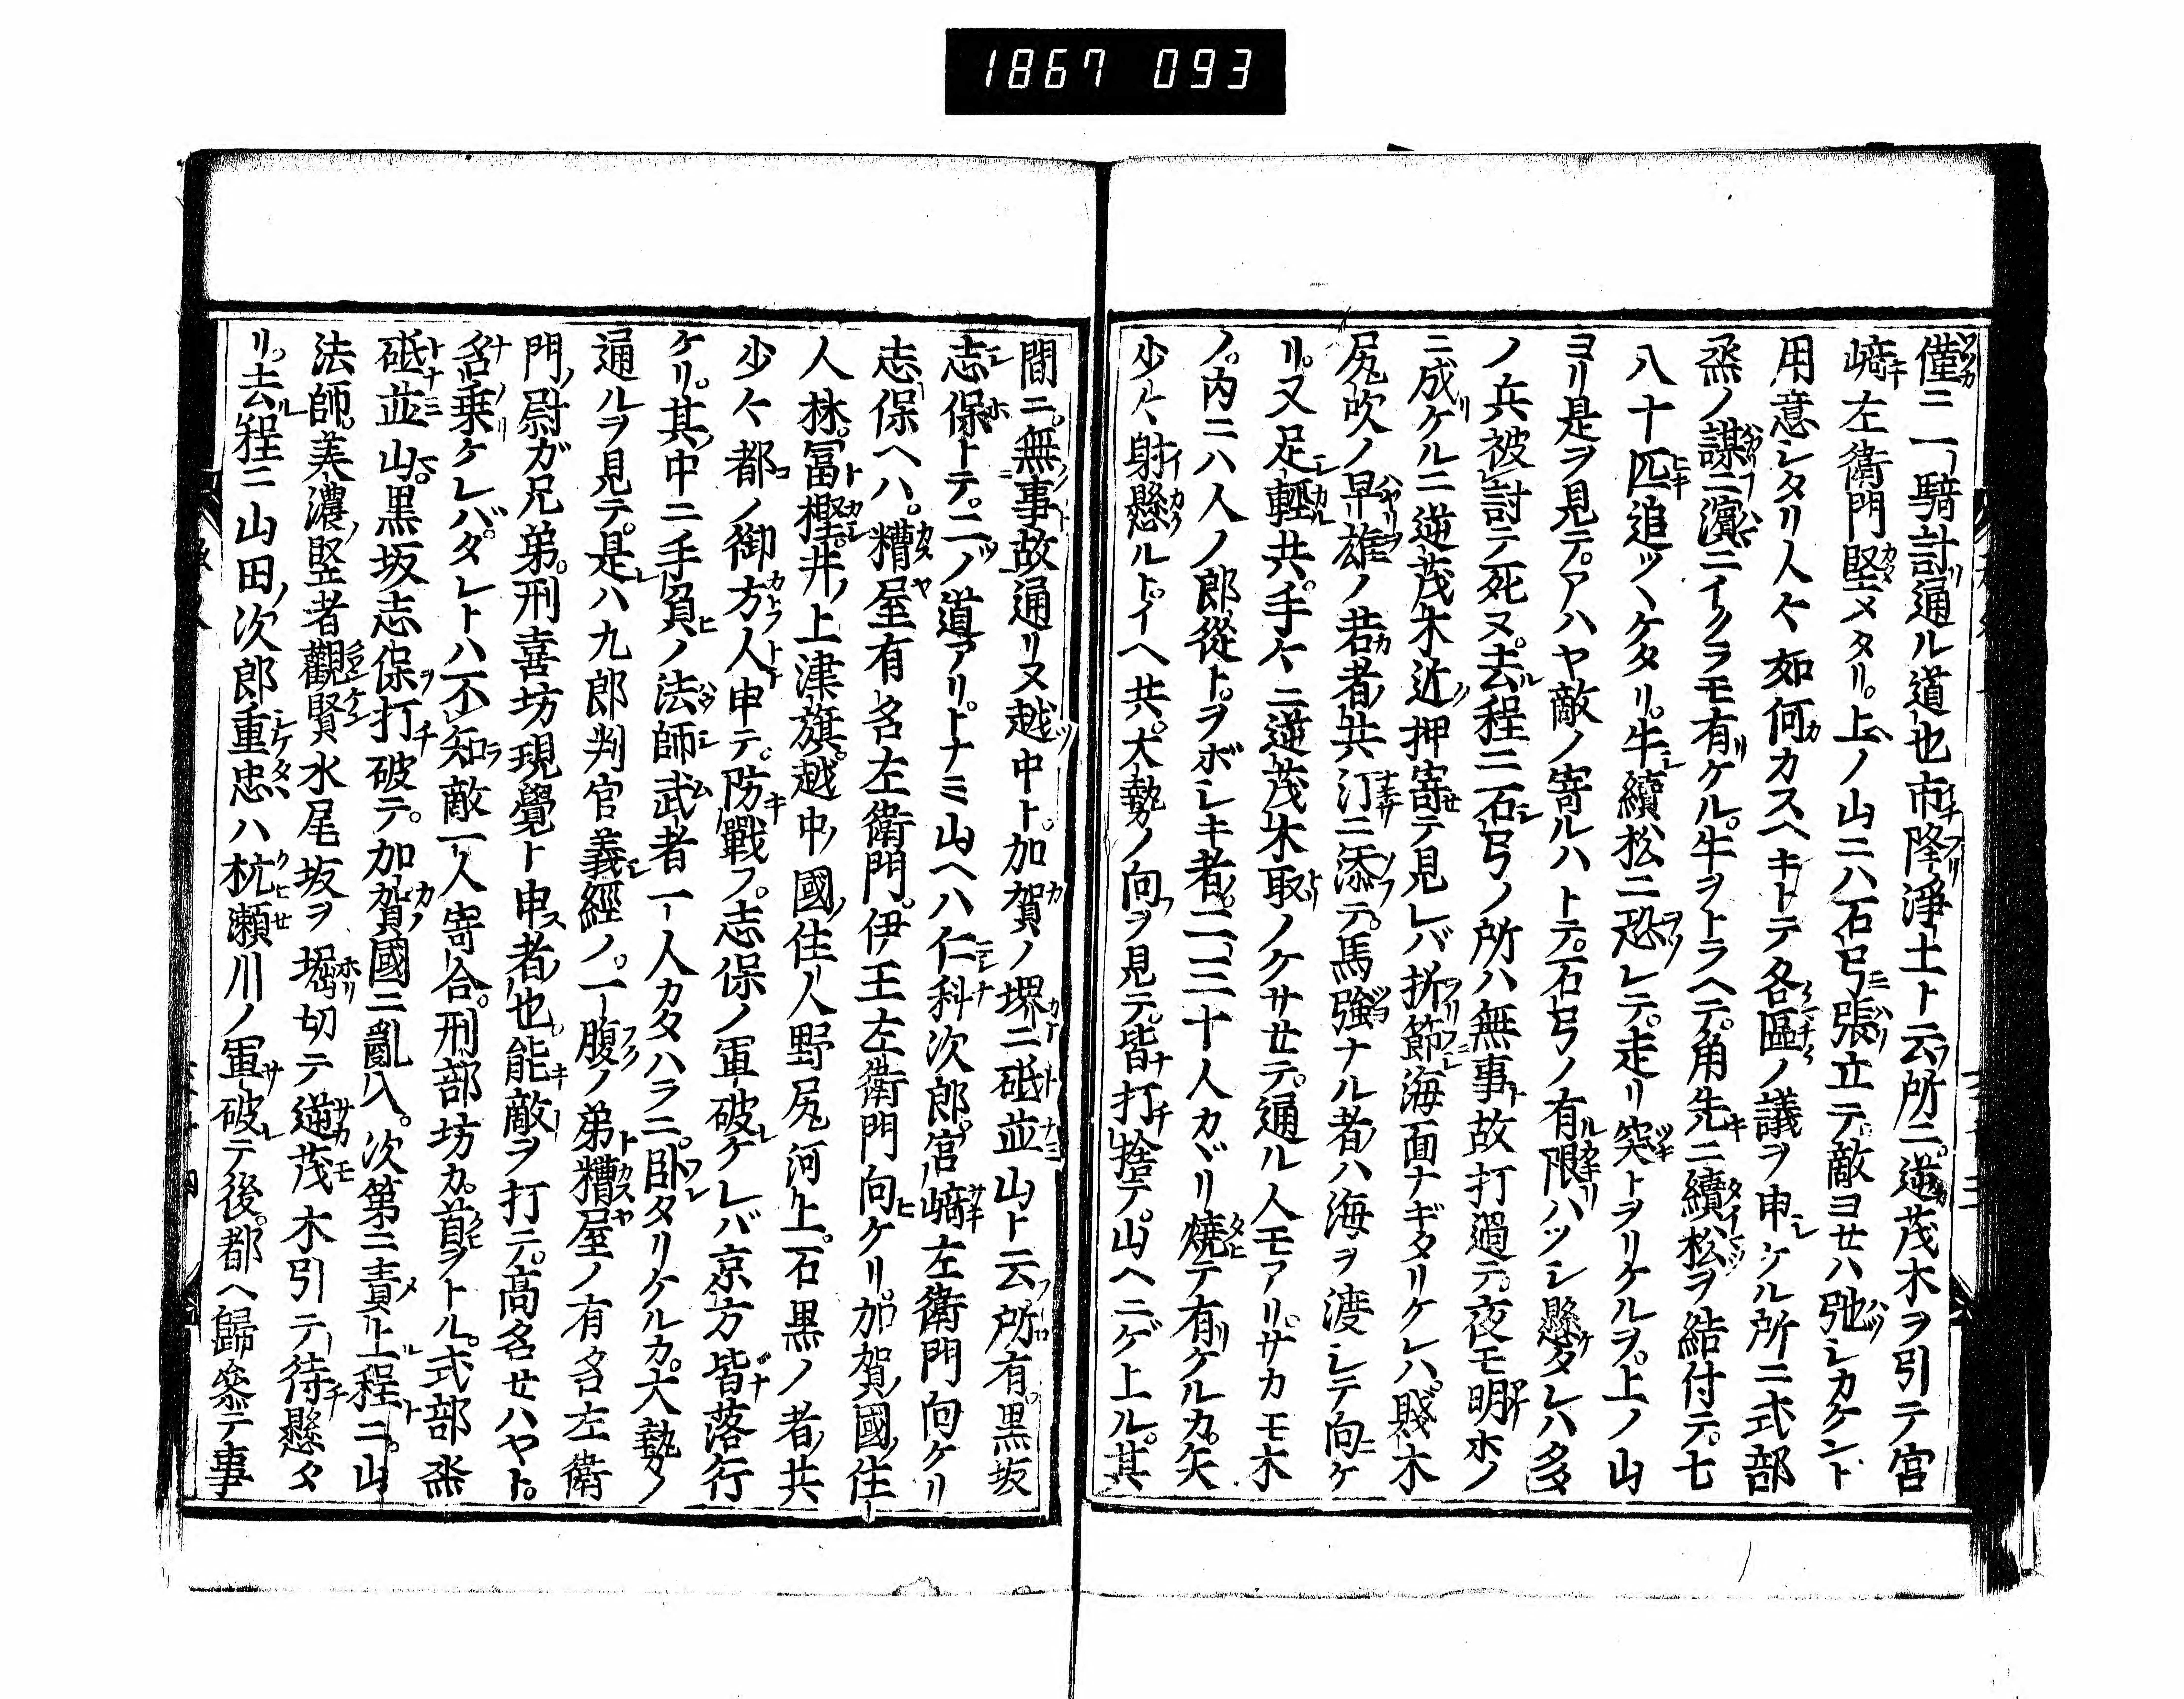 1867 093
僅ニ一騎討通ル道也市降浄土ト云所ニ逆茂木ヲ引テ宮
﨑左衛門堅メタリ。上ノ山ニハ石弓張立テ敵ヨセハ弛シカケント
用意シタリ人々如何カスヘキトテ各區ノ議ヲ申ケル所ニ式部
烝ノ謀ニ濵ニイクラモ有ケル。牛ヲトラヘテ。角先ニ續松ヲ結付テ。七
八十匹追ツヽケタリ。牛續松ニ恐レテ。走リ突トヲリケルヲ。上ノ山
ヨリ是ヲ見テ。アハヤ敵ノ寄ルハトテ。石弓ノ有限ハツシ懸タレハ多
ノ兵被討テ死ヌ。去程ニ石弓ノ所ハ無事故打過テ。夜モ明ホノ
ニ成ケルニ逆茂木近押寄テ見レバ折節海面ナギタリケレハ。賤木
尻吹ノ早雄ノ若者共汀ニ添テ。馬強ナル者ハ海ヲ渡シテ向ケ
リ。又足軽共。手々ニ逆茂木取ノケサセテ。通ル人モアリ。サカモ木
ノ。内ニハ人ノ郎從トヲボレキ者。二三十人カヾリ焼テ有ケルカ。矢
少々射懸ルトイヘ共。大勢ノ向ヲ見テ。皆打捨テ。山ヘニゲ上ル。其
間ニ。無事故通リヌ越中ト。加賀ノ堺ニ砥並山ト云所有。黒坂
志保トテ。二ノ道アリ。トナミ山ヘハ仁科次郎。宮﨑左衛門向ケリ
志保ヘハ。糟屋有名左衛門。伊王左衛門向ケリ。加賀國住
人林。冨樫。井上津旗。越中國住人野尻河上。石黒ノ者共
少々都ノ御方人申テ。防戰フ。志保ノ軍破ケレバ京方皆落行
ケリ。其中ニ手負ノ法師武者一人カタハラニ。卧タリケルカ。大勢ノ
通ルヲ見テ。是ハ九郎判官義經ノ。一腹ノ弟糟屋ノ有名左衛
門尉ガ兄弟。刑喜坊現覺ト申者也能敵ヲ打テ。高名セハヤト。
名乗ケレバ。タレトハ不知敵一人寄合。刑部坊カ。首ヲトル。式部烝
砥並山。黒坂志保打破テ。加賀國ニ亂入。次第ニ責上程ニ。山
法師。美濃竪者觀賢水尾坂ヲ堀切テ逆茂木引テ待懸タ
リ。去程ニ山田次郎重忠ハ杭瀬川ノ軍破テ後。都ヘ歸參テ事